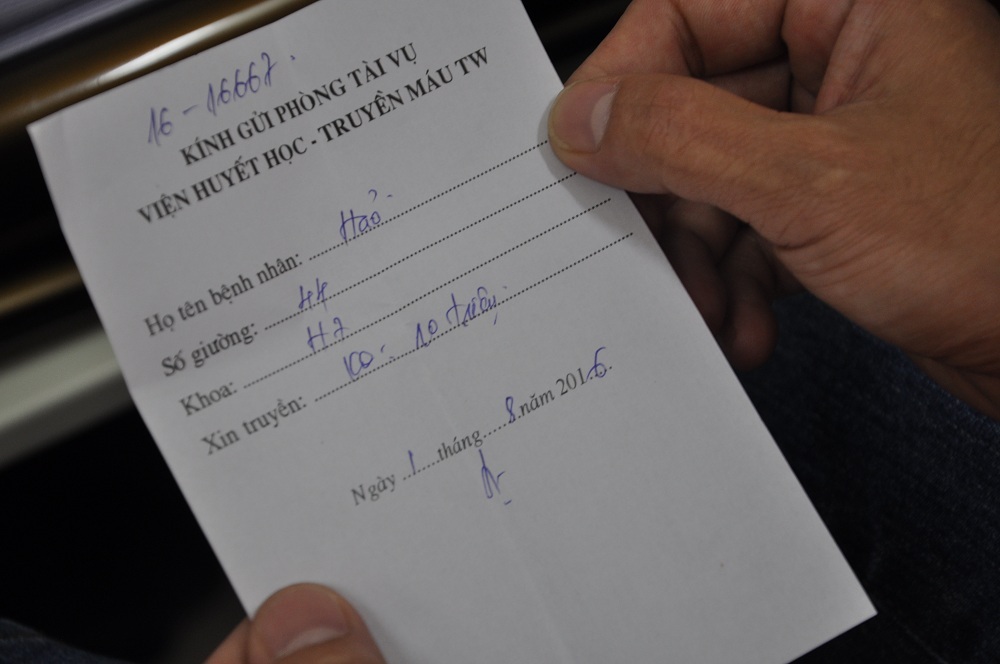 16 - 16667.
KÍNH GỬI PHÒNG TÀI VỤ
VIỆN HUYẾT HỌC - TRUYỀN MÁU TW
Họ tên bệnh nhân: Hảo
Số giường: 44
Khoa: H7
Xin truyền: 10 triệu
Ngày 1 tháng 8 năm 2016.